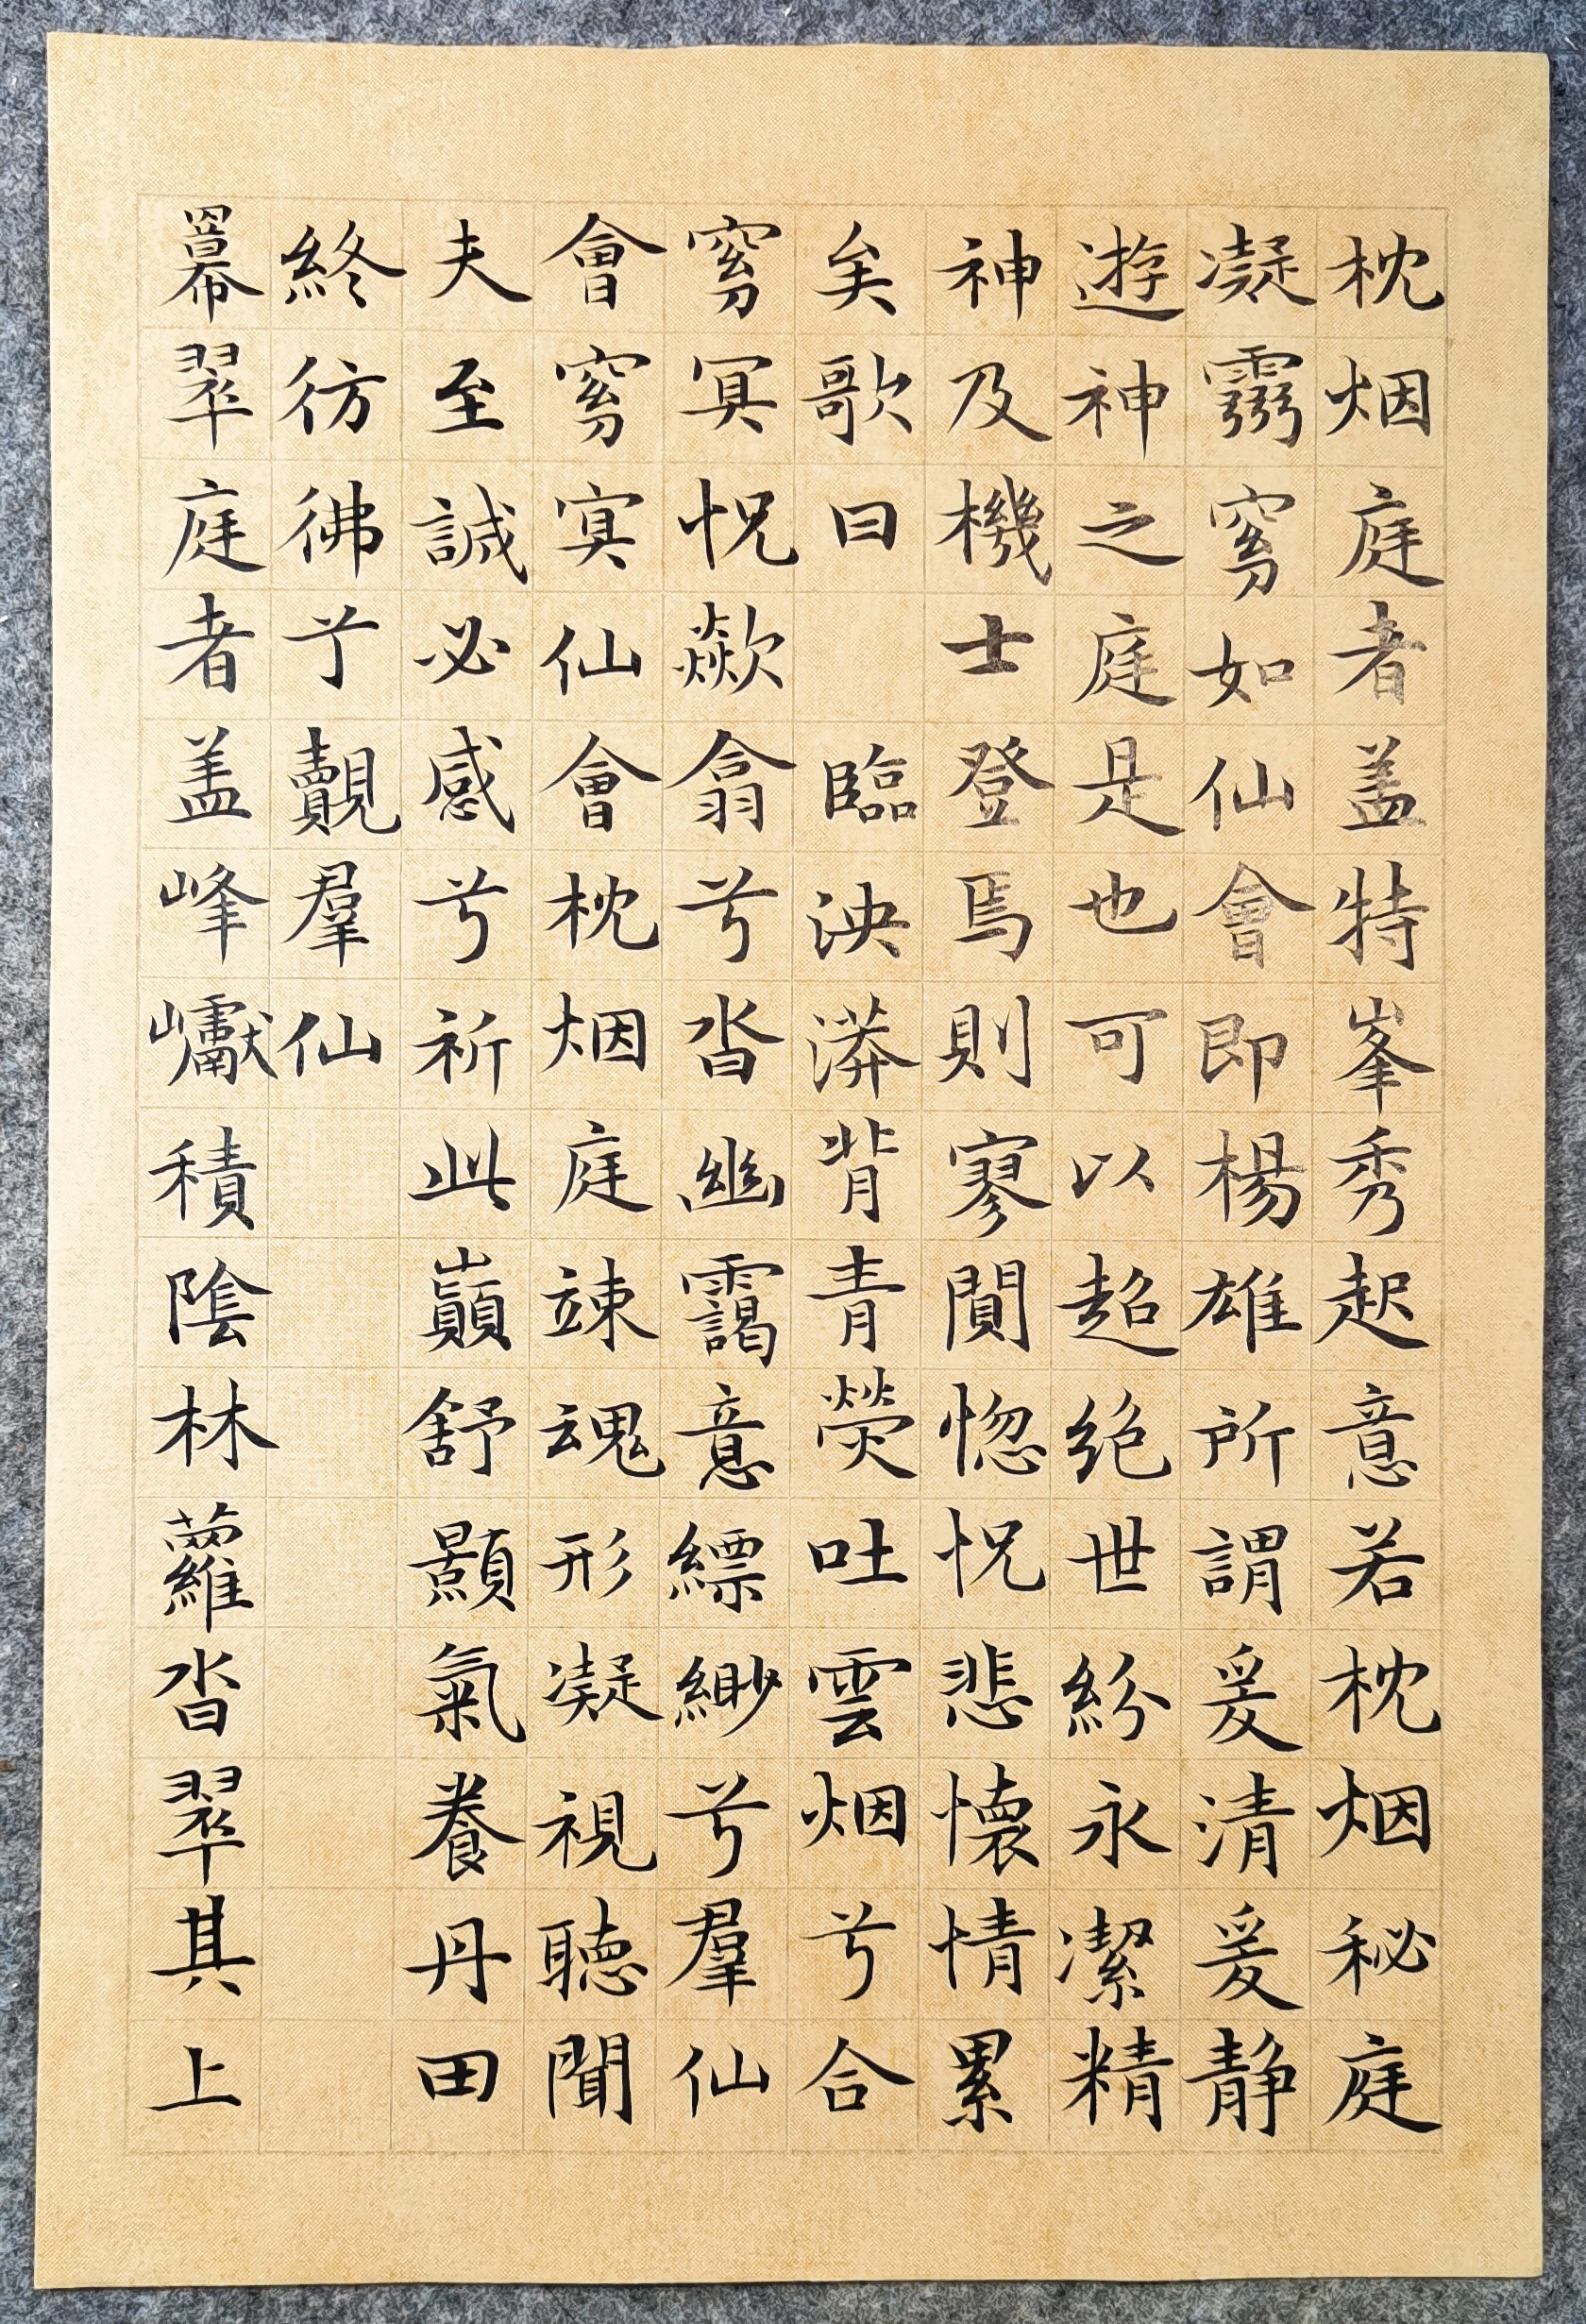 枕烟庭者盖特峯秀起意若枕烟秘庭
凝霛窅如仙會即楊雄所謂爰清爰静
遊神之庭是也可以超絶世紛永潔精
神及機士登焉則寥闃惚怳悲懷情累
矣歌曰 臨泱漭背青熒吐雲烟兮合
窅冥怳歘翕兮沓幽靄意縹緲兮羣仙
會窅冥仙會枕烟庭竦魂形凝視聽聞
夫至誠必感兮祈此巔舒顥氣養丹田
終彷彿兮覿羣仙
冪翠庭者盖峰巘積陰林蘿沓翠其上